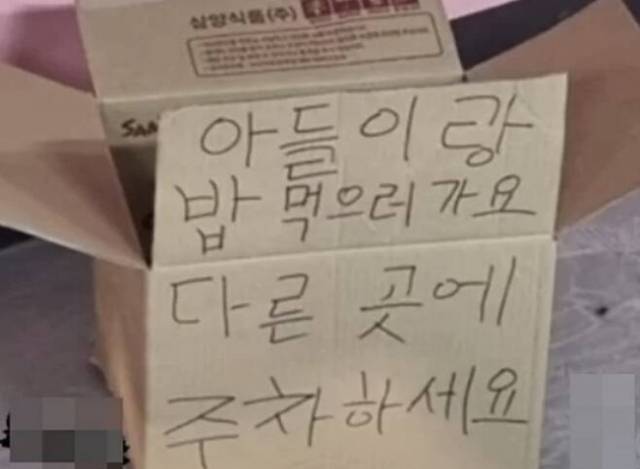 삼양식품(주)
SAM
아들이랑
밥 먹으러가요
다른 곳에
주차하세요